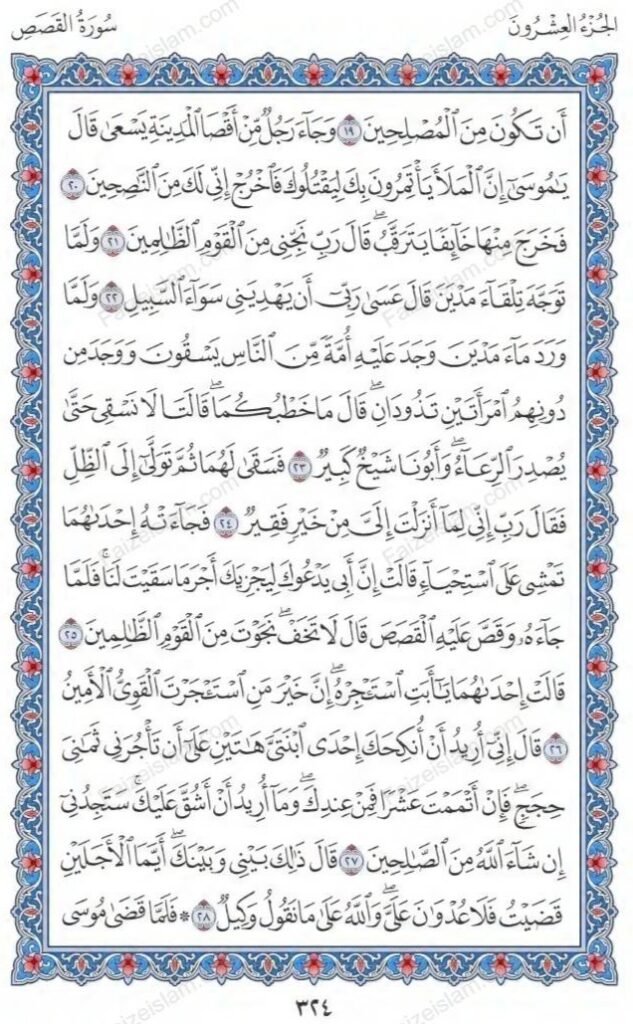 الجُزْءُ العِشْرُونَ
سُورَةُ القَصَصِ
أَن تَكُونَ مِنَ ٱلْمُصْلِحِينَ ١٩ وَجَآءَ رَجُلٌ مِّنْ أَقْصَا ٱلْمَدِينَةِ يَسْعَىٰ قَالَ
يَٰمُوسَىٰٓ إِنَّ ٱلْمَلَأَ يَأْتَمِرُونَ بِكَ لِيَقْتُلُوكَ فَٱخْرُجْ إِنِّى لَكَ مِنَ ٱلنَّٰصِحِينَ ٢٠
فَخَرَجَ مِنْهَا خَآئِفًا يَتَرَقَّبُۖ قَالَ رَبِّ نَجِّنِى مِنَ ٱلْقَوْمِ ٱلظَّٰلِمِينَ ٢١ وَلَمَّا
تَوَجَّهَ تِلْقَآءَ مَدْيَنَ قَالَ عَسَىٰ رَبِّىٓ أَن يَهْدِيَنِى سَوَآءَ ٱلسَّبِيلِ ٢٢ وَلَمَّا
وَرَدَ مَآءَ مَدْيَنَ وَجَدَ عَلَيْهِ أُمَّةً مِّنَ ٱلنَّاسِ يَسْقُونَ وَوَجَدَ مِن
دُونِهِمُ ٱمْرَأَتَيْنِ تَذُودَانِۖ قَالَ مَا خَطْبُكُمَاۖ قَالَتَا لَا نَسْقِى حَتَّىٰ
يُصْدِرَ ٱلرِّعَآءُۖ وَأَبُونَا شَيْخٌ كَبِيرٌ ٢٣ فَسَقَىٰ لَهُمَا ثُمَّ تَوَلَّىٰٓ إِلَى ٱلظِّلِّ
فَقَالَ رَبِّ إِنِّى لِمَآ أَنزَلْتَ إِلَىَّ مِنْ خَيْرٍ فَقِيرٌ ٢٤ فَجَآءَتْهُ إِحْدَىٰهُمَا
تَمْشِى عَلَى ٱسْتِحْيَآءٍ قَالَتْ إِنَّ أَبِى يَدْعُوكَ لِيَجْزِيَكَ أَجْرَ مَا سَقَيْتَ لَنَاۚ فَلَمَّا
جَآءَهُۥ وَقَصَّ عَلَيْهِ ٱلْقَصَصَ قَالَ لَا تَخَفْۖ نَجَوْتَ مِنَ ٱلْقَوْمِ ٱلظَّٰلِمِينَ ٢٥
قَالَتْ إِحْدَىٰهُمَا يَٰٓأَبَتِ ٱسْتَـْٔجِرْهُۖ إِنَّ خَيْرَ مَنِ ٱسْتَـْٔجَرْتَ ٱلْقَوِىُّ ٱلْأَمِينُ
٢٦ قَالَ إِنِّىٓ أُرِيدُ أَنْ أُنكِحَكَ إِحْدَى ٱبْنَتَىَّ هَٰتَيْنِ عَلَىٰٓ أَن تَأْجُرَنِى ثَمَٰنِىَ
حِجَجٍۖ فَإِنْ أَتْمَمْتَ عَشْرًا فَمِنْ عِندِكَۖ وَمَآ أُرِيدُ أَنْ أَشُقَّ عَلَيْكَۚ سَتَجِدُنِىٓ
إِن شَآءَ ٱللَّهُ مِنَ ٱلصَّٰلِحِينَ ٢٧ قَالَ ذَٰلِكَ بَيْنِى وَبَيْنَكَۖ أَيَّمَا ٱلْأَجَلَيْنِ
قَضَيْتُ فَلَا عُدْوَٰنَ عَلَىَّۖ وَٱللَّهُ عَلَىٰ مَا نَقُولُ وَكِيلٌ ٢٨ * فَلَمَّا قَضَىٰ مُوسَى
٣٢٤
Faizeislam.com